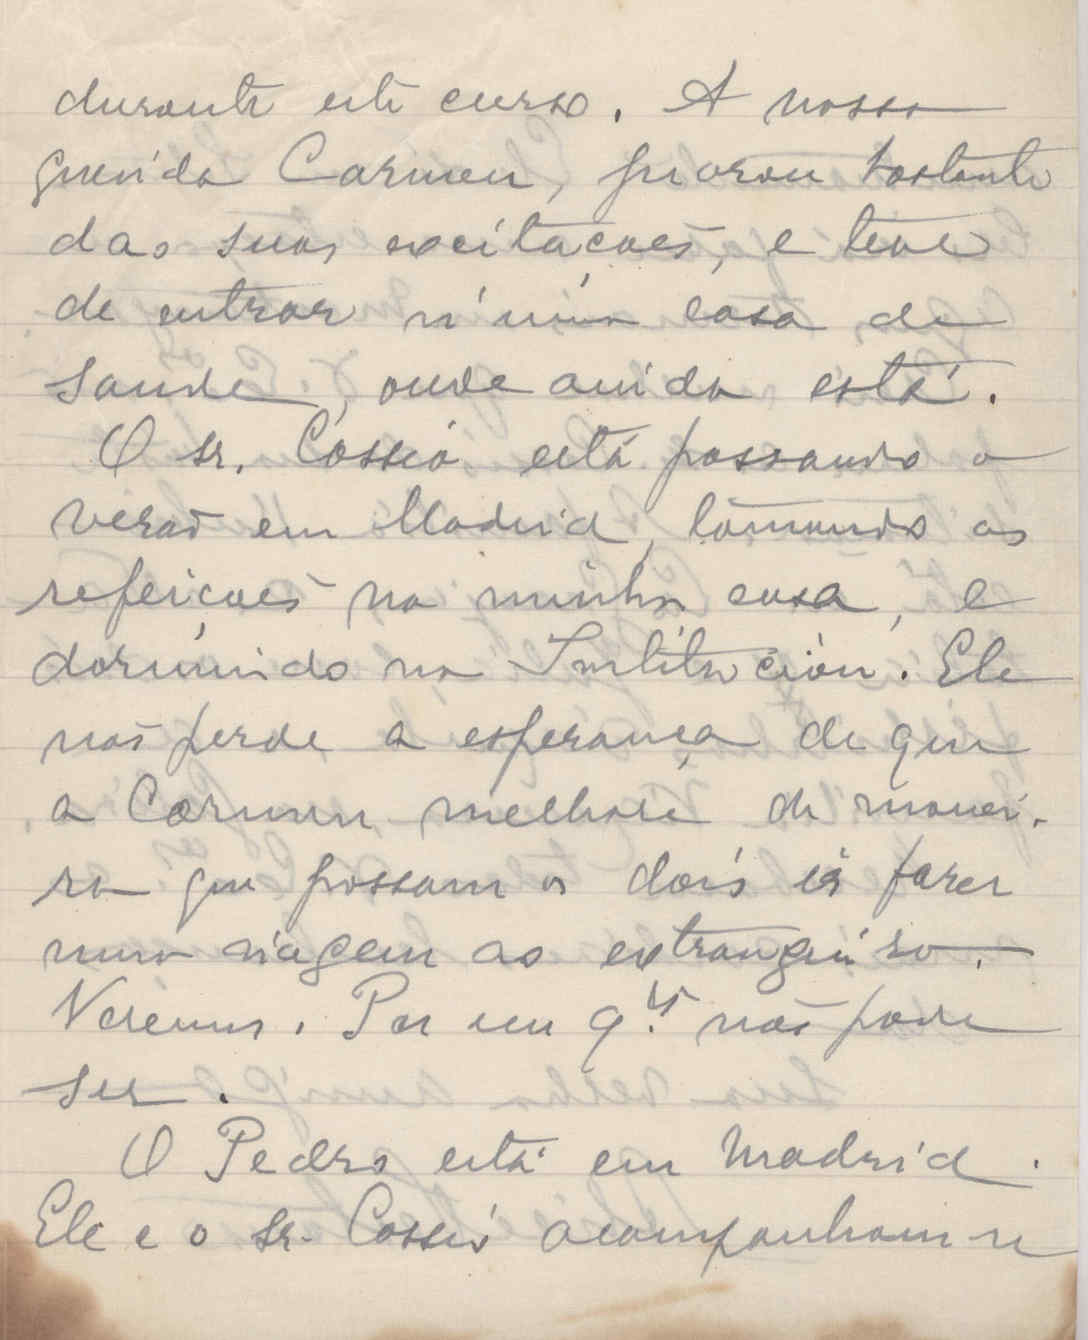 durante este curso. A nossa
querida Carmen, piorou bastante
das suas excitaçoes, e teve
de entrar n'uma casa de
saude, onde ainda está.
O sr. Cossío está passando o
verão em Madrid, tomando as
refeiçoes na minha casa, e
dormindo na Institución. Ele
não perde a esperança de que
a Carmen melhore de manei-
ra que possam os dois ir fazer
uma viagem ao extrangeiro.
Veremos. Por em q.to não pode
ser.
O Pedro está em Madrid.
Ele e o sr. Cossío acompanham n